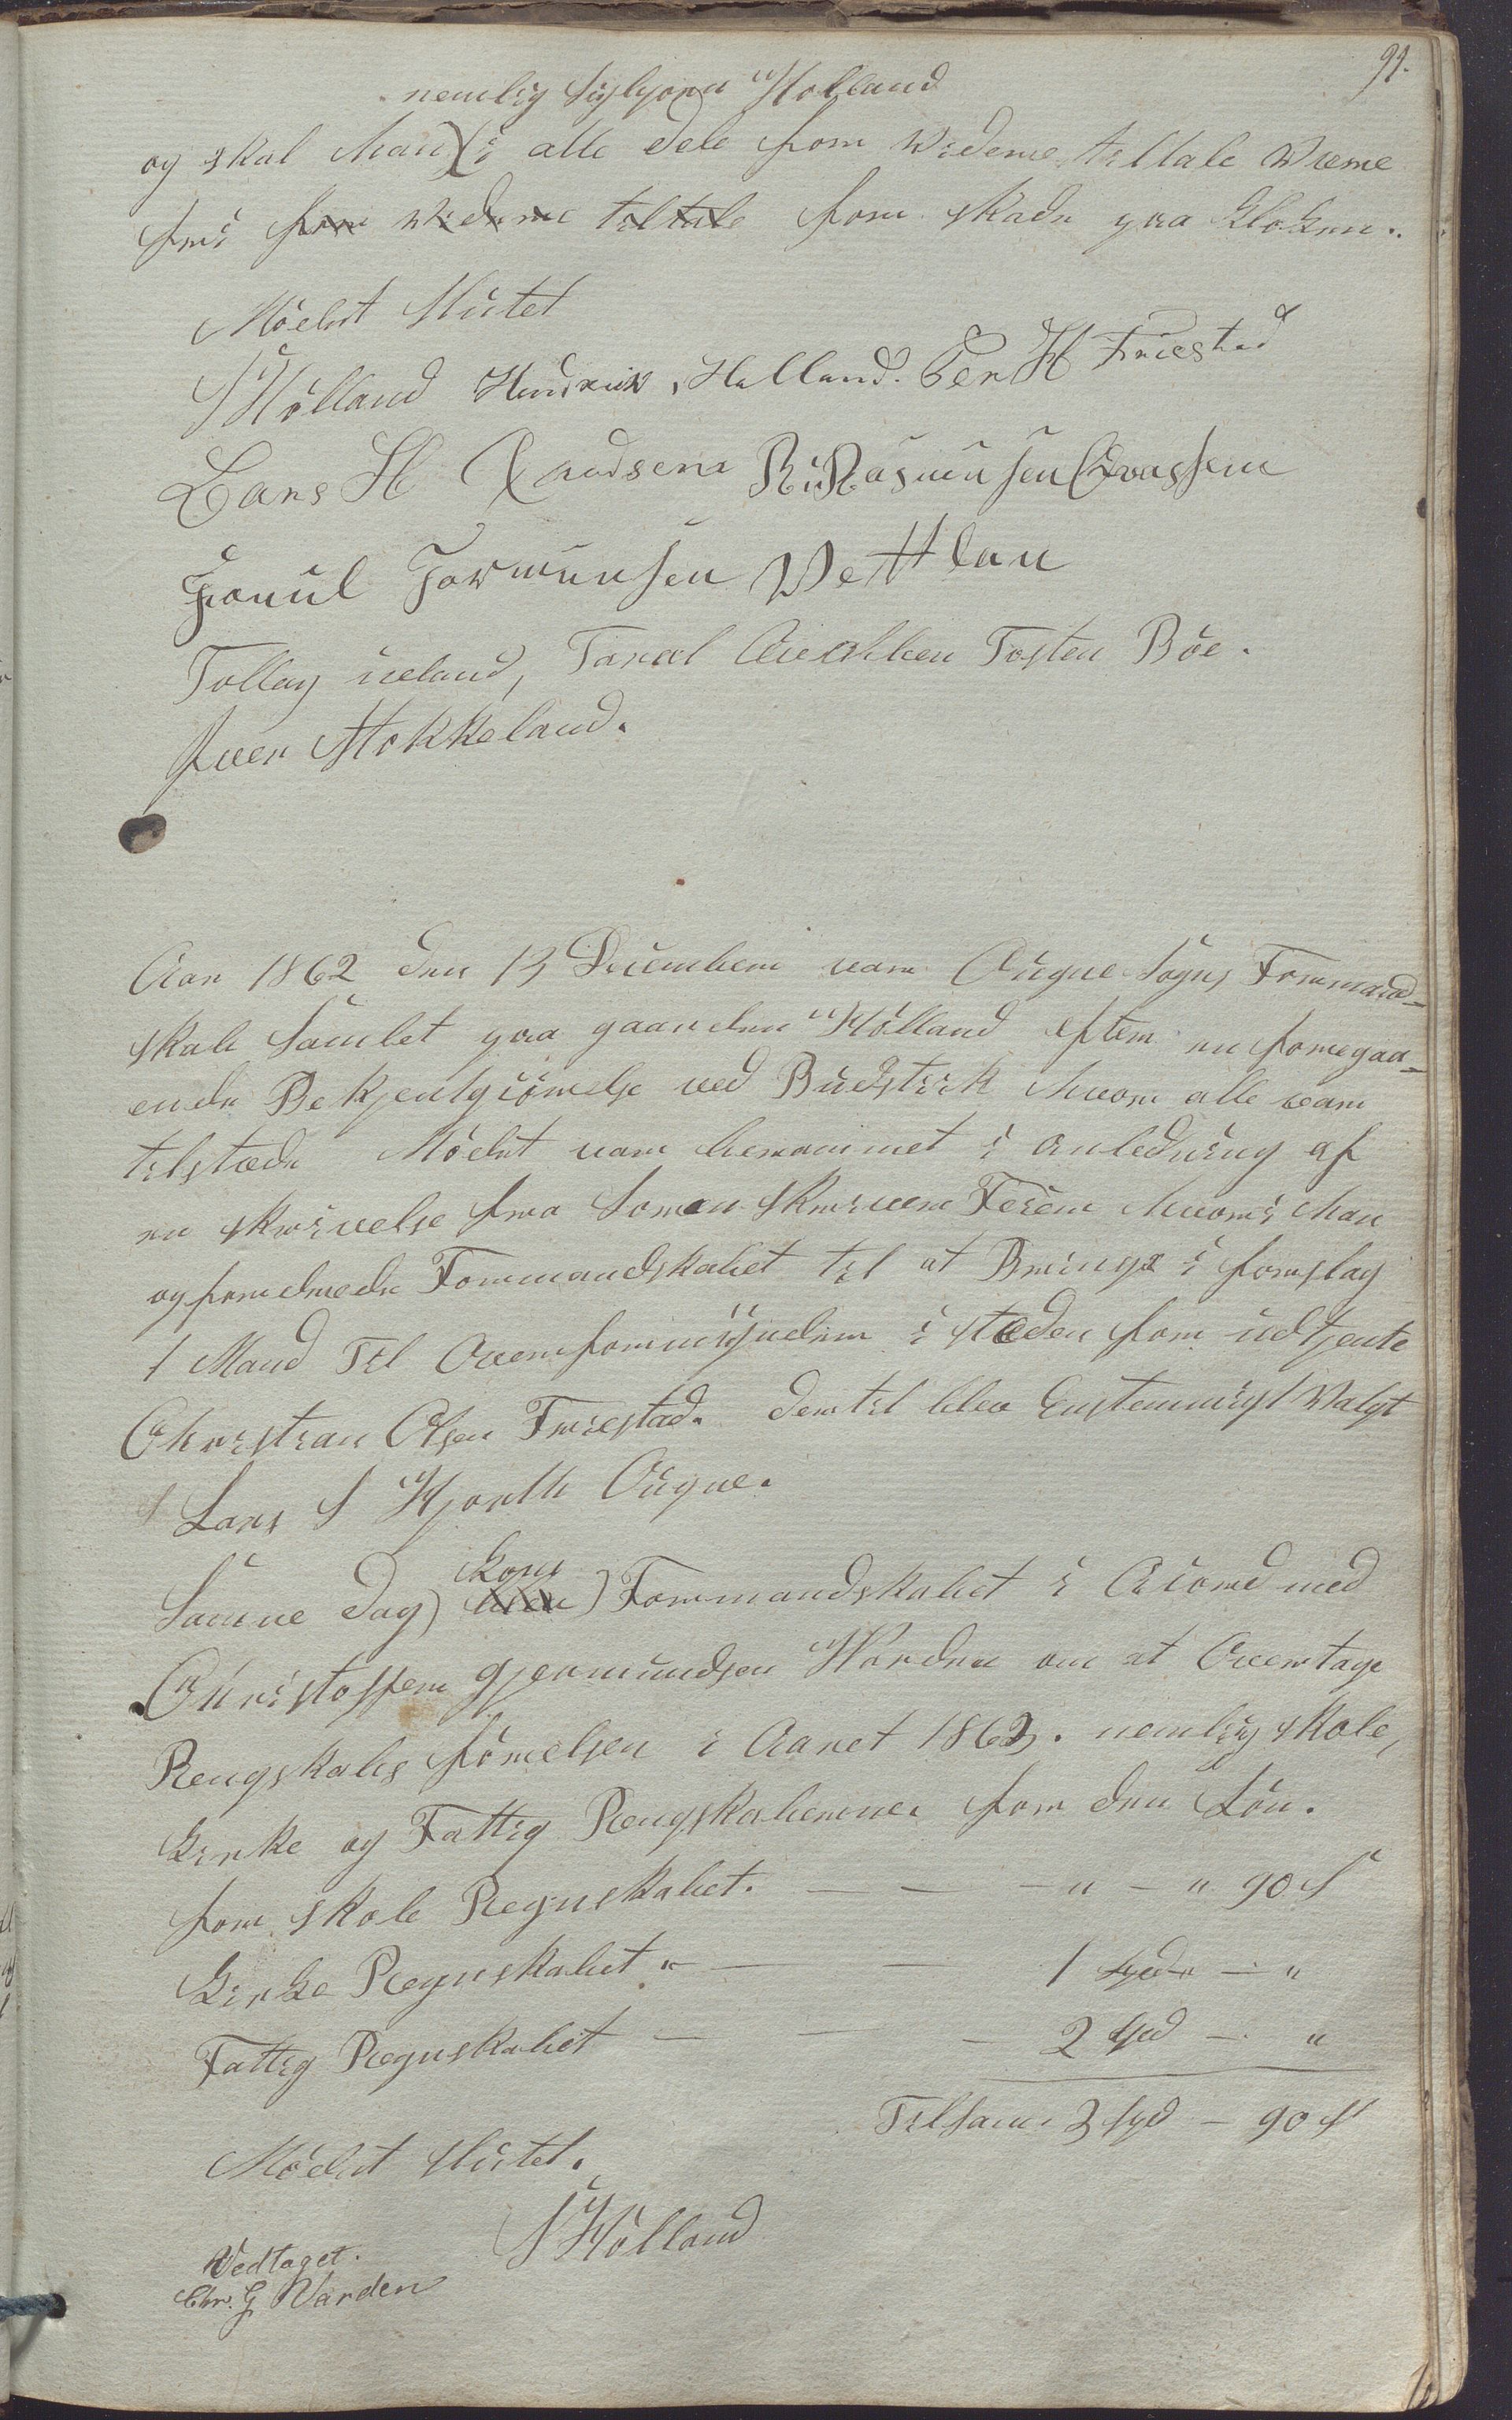 91.
nemlig Sigbjørn Hølland
og skal Han i alle dele for videre tiltale være
fri for videre tiltale for skade paa Kloken.
Mødet Slutet
S Hølland Hendrik Helland. Per H Friestad
Lars H Knudsen R. Rasmusen Qvassem
Tollag ueland, Tosten Böe.
Iver Stokkeland.
Aar 1862 den 13 December var Ougne Sogns Formand-
skab Samlet paa gaarden Hølland efter en foregaa-
ende Bekjentgiørrelse ved Budstik hvor alle var
tilstæde Mødet var berammet i anledning af
en skrivelse fra Sorenskriver Feier hvori Han
opfordrede Formandskabet til at Bringe i forslag
1 Mand Til Overformynder i stæden for udtjente
Christian Olsen Friestad. dertil blev Enstemmigt Valgt
Lars S Hjorth Ougne.
Samme dag) kom
blev) Formandskabet i Akord med
Christoffer Gjermundsen Warden om at Overtage
Rengskabs førrelsen i Aaret 1863. nemlig skole,
Kirke og Fattig Rengskaberne for den Løn.
for skole Regnskabet. — — — " — " 90 s
Kirke Regnskabet " — — 1 spd — "
Fattig Regnskabet — — — 2 spd — "
Tilsam. 3 spd — 90 s
Mødet slutet.
S Hølland
Vedtaget.
Chr. G Varden